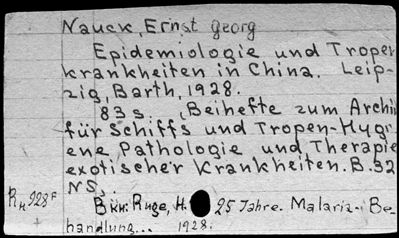 Nauck, Ernst Georg
Epidemiologie und Tropen
krankheiten in China. Leip-
zig, Barth, 1928.
83 s. (Beihefte zum Archiv
für Schiffs und Tropen-Hygi
ene Pathologie und Therapie
exotischer Krankheiten. B. 32
NS,
RH 928F Bkh: Ruge, H. 25 Jahre. Malaria- Be-
handlung... 1928.